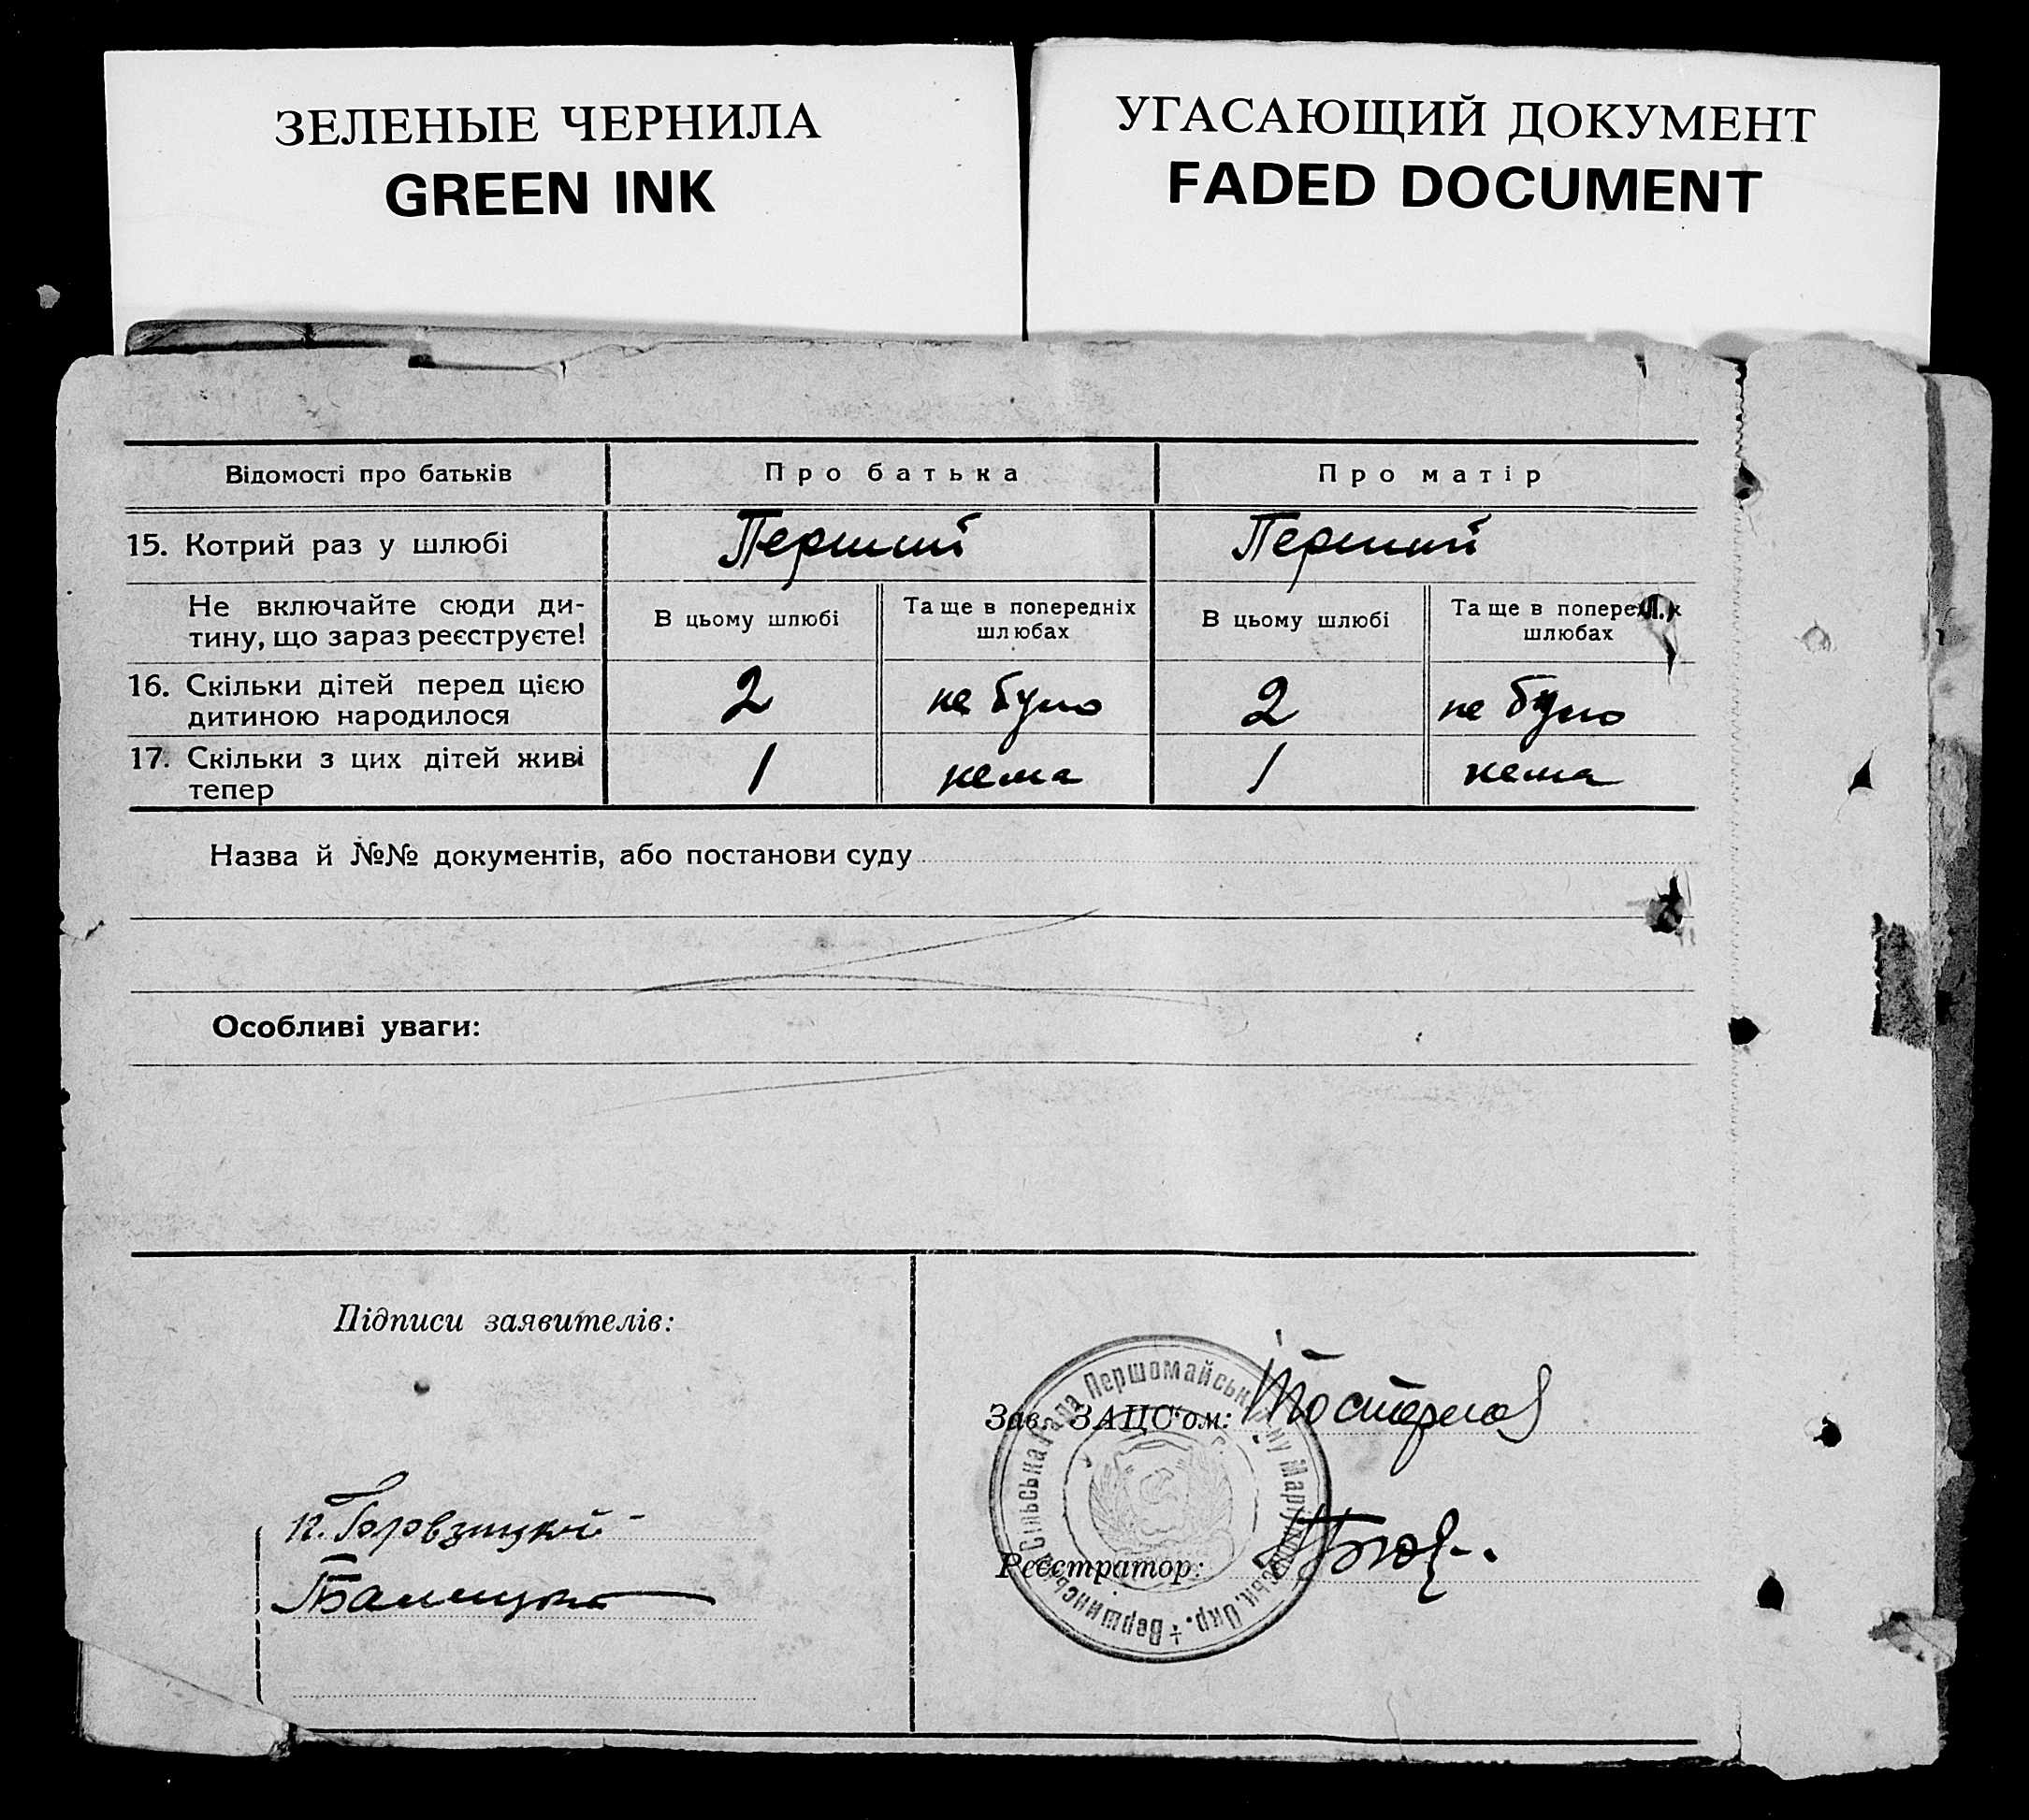 ЗЕЛЕНЫЕ ЧЕРНИЛА
GREEN INK
УГАСАЮЩИЙ ДОКУМЕНТ
FADED DOCUMENT
Відомості про батьків Про батька Про матір
15. Котрий раз у шлюбі Перший Перший
Не включайте сюди ди-
тину, що зараз реєструєте!
В цьому шлюбі
Та ще в попередніх
шлюбах
В цьому шлюбі
Та ще в
шлюбах
16. Скільки дітей перед цією
дитиною народилося
2 не було 2 не було
17. Скільки з цих дітей живі
тепер
1 нема 1 нема
Назва й №№ документів, або постанови суду
Особливі уваги:
Підписи заявителів:
Зав. ЗАЦС'ом:
Реєстратор:
Сільська Рада Першомайськ
Окр.